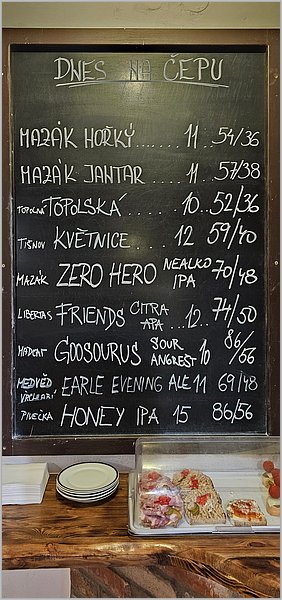 DNES NA ČEPU
MAZÁK HOŘKÝ...... 11 54/36
MAZÁK JANTAR ..... 11.. 57/38
TOPOLNÁ TOPOLSKÁ .... 10.. 52/36
TIŠNOV KVĚTNICE .... 12 59/40
MAZÁK ZERO HERO NEALKO IPA 70/48
LIBERTAS FRIENDS CITRA APA ...12.. 74/50
MADCAT GOOSOURUS SOUR ANGREŠT 10 86/56
MEDVĚD VRCHLABÍ EARLE EVENING ALE 11 69/48
PIVEČKA HONEY IPA 15 86/56